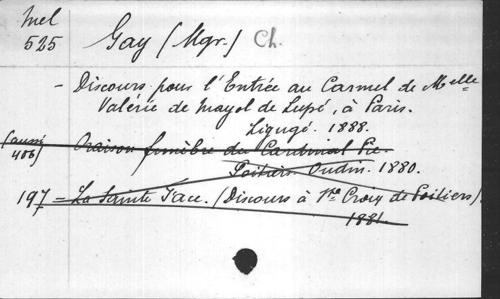 Mel
525
Gay (Mgr.) Ch.
- Discours pour l'Entrée au Carmel de Melle
Valérie de Mayol de Lupé, à Paris.
Ligugé. 1888.
(aussi
406) Oraison funèbre du Cardinal Pie.
Poitiers. Oudin. 1880.
197 = La Sainte Face. (Discours à Ste Croix de Poitiers)
1881.